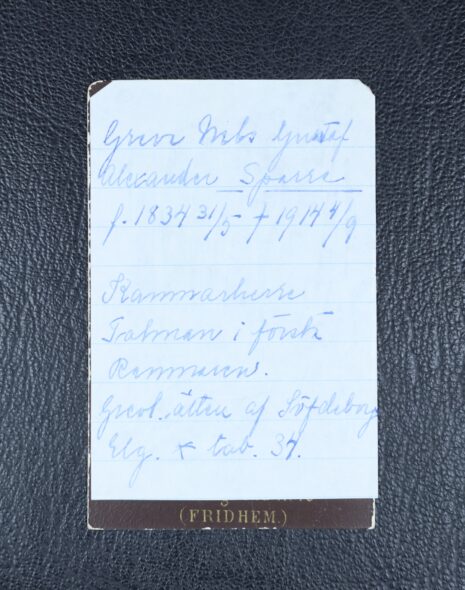 Greve Nils Gustaf
Alexander Sparre
f. 1834 31/5 † 1914 4/9
Kammarherre
Talman i första
Kammaren.
Grevl. ätten af Söfdeborg
Elg. tab. 37.
(FRIDHEM.)